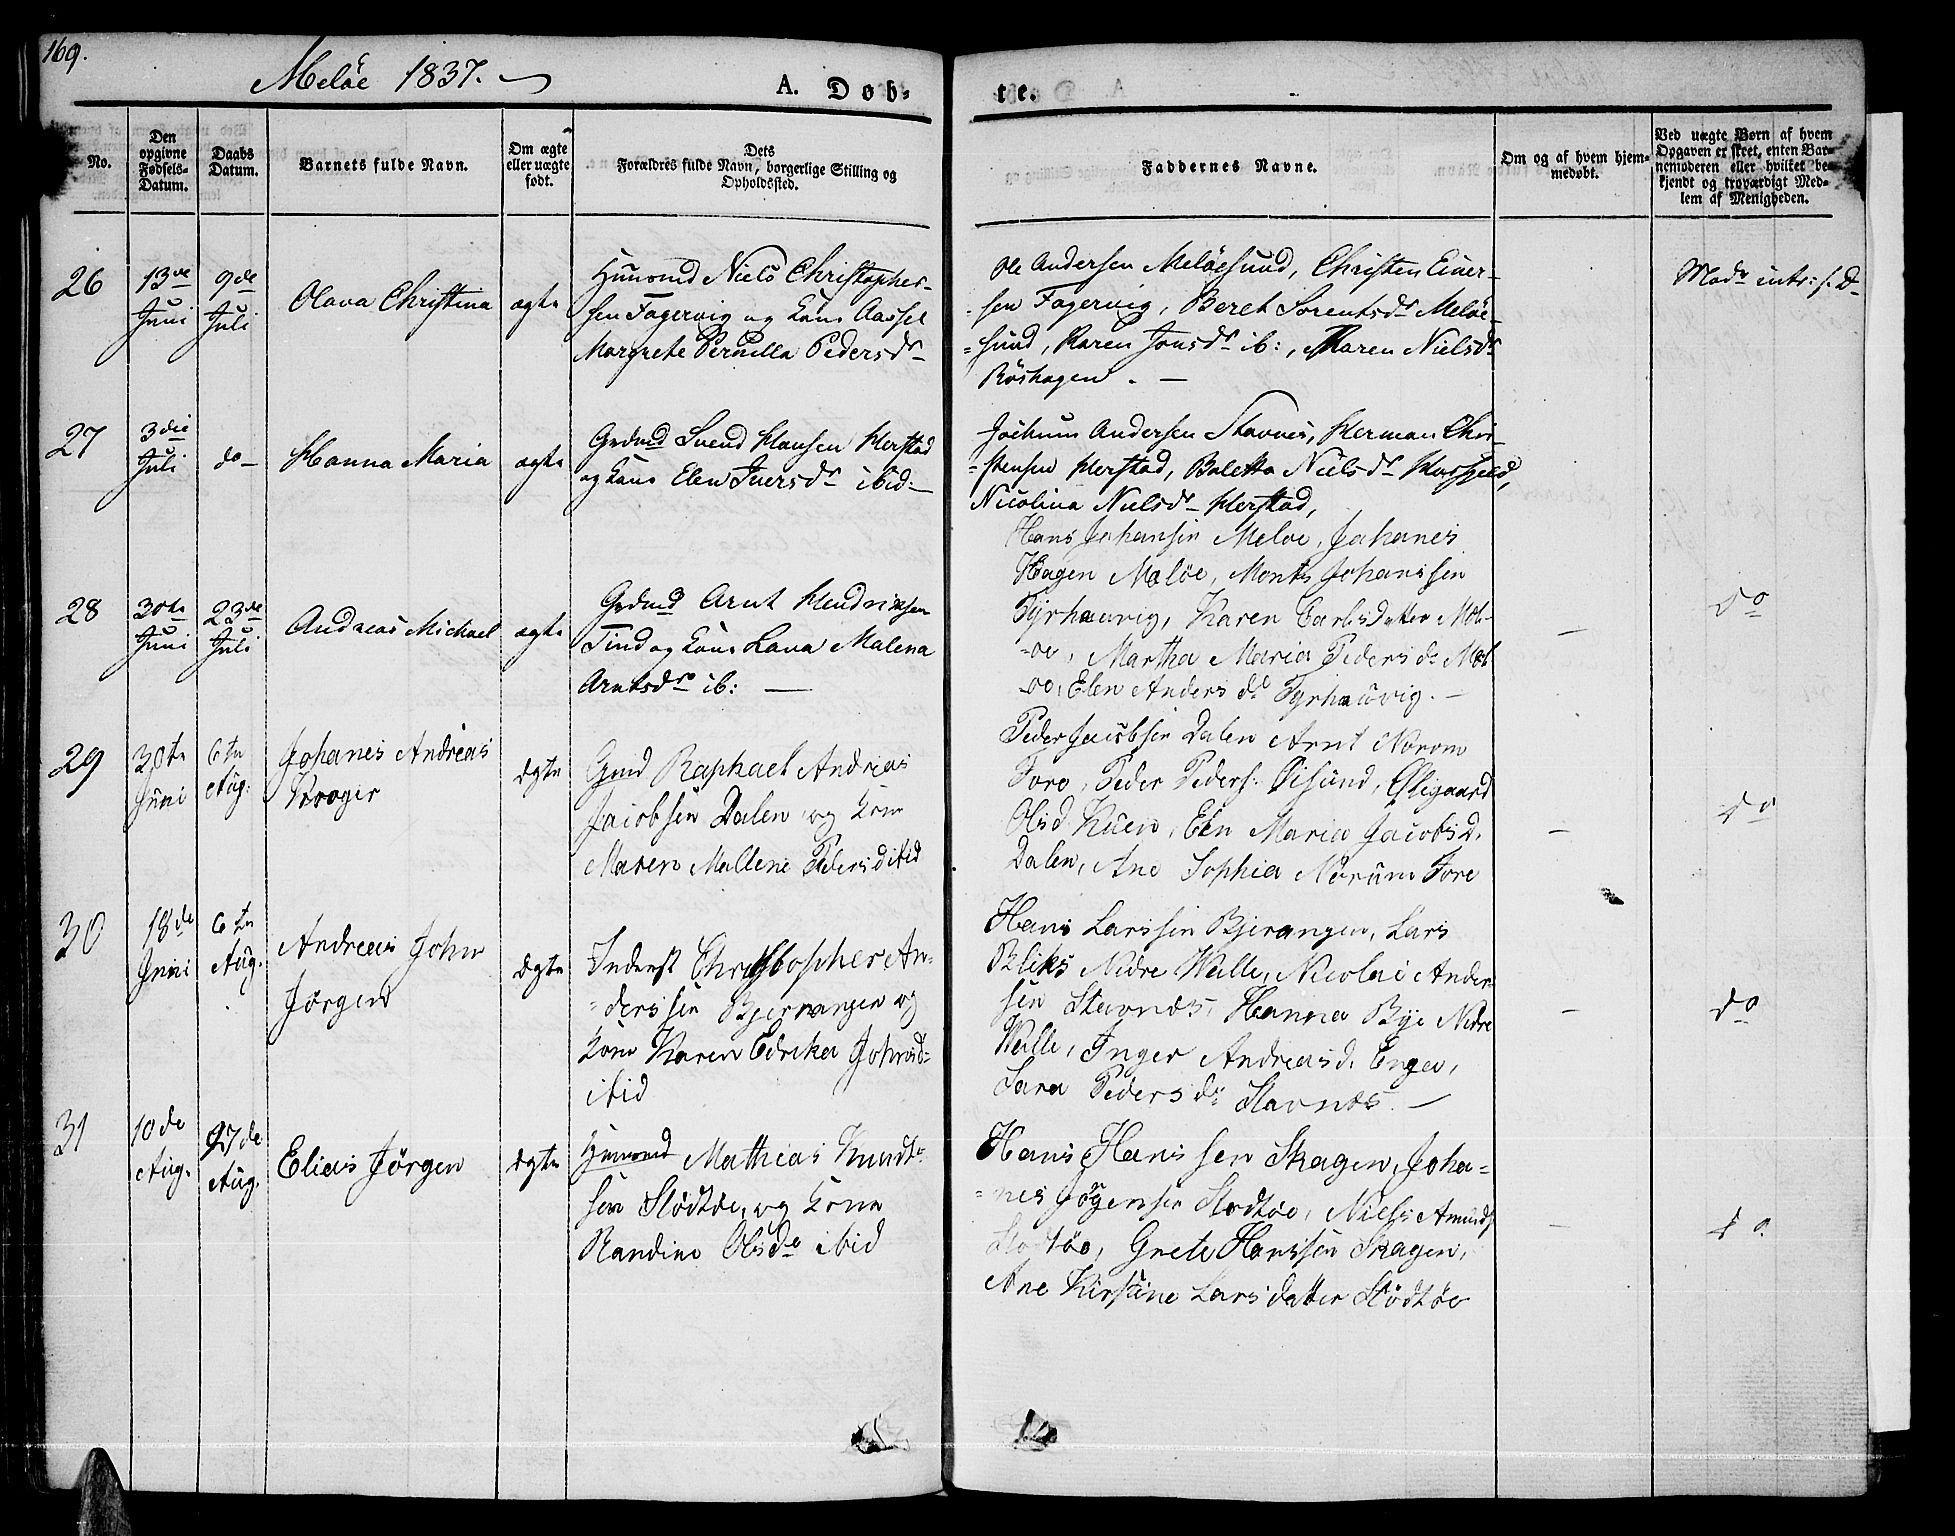 169.
Meløe 1837.
A. Døb-
te.
No.
Den
opgivne
Fødsels-
Datum.
Daabs
Datum.
Barnets fulde Navn.
Om ægte
eller uægte
født.
Dets
Forældres fulde Navn, borgerlige Stilling og
Opholdssted.
Faddernes Navne.
Om og af hvem hjem-
medøbt.
Ved uægte Børn af hvem
Opgaven er skeet, enten Bar-
nemoderen eller hvilket be-
kjendt og troværdigt Med-
lem af Menigheden.
26
13de
Juni
9de
Juli
Olava Christina
ægte
Huusmd Niels Christopher-
sen Fagervig og Kone Aassel
Margrete Pernilla Pedersdr
Ole Andersen Meløesund, Christen Einer-
-sen Fagervig, Beret Sorentsdr Meløe-
-sund, Karen Jonsdr ib:, Maren Nielsdr
Røshagen. —
Modr intr: s. D-
27
3die
Juli
do—
Hanna Maria
ægte
Grdmd Svend Hansen Herstad
og Kone Elen Iversdr ibid:—
Jochum Andersen Stavnes, Herman Chri-
-stensen Herstad, Baletta Nielsdr
Nicolina Nielsdr Herstad,
28
30te
Juni
23de
Juli
Andreas Michael
ægte
Grdmd Arnt Hendriksen
Tind og Kone Lava Malena
Arntsdr ib: —
Hans Johansen Meløe, Johanes
Hagen Meløe, Monts Johanssen
Tyrhaavig, Karen Carlsdatter Mel-
-øe, Martha Maria Pedersdr Mel
-øe, Elen Andersdr Tyrhaavig. —
—
do
29
30te
Juni
6te
Aug:
Johanes Andreas
Krøger
ægte
Gmd Raphael Andreas
Jacobsen Dalen og Kone
Maren Mallene Pedersd ibid
Peder Jacobsen Dalen Arnt Norum
Fore, Peder Peders: Øisund, Elligaard
Olsd Kuen, Elen Maria Jacobsd.
Dalen, Ane Sophia Nørum Fore
—
do
30
18de
Juni
6te
Aug.
Andreas John
Jørgen
ægte
Inderst Christopher An-
-derssen Bjerangen og
Kone Karen Edrika Johnsd-
ibid
Hans Larssen Bjerangen, Lars
Bliks Nedre Walle, Nicolai Ander
sen Stavnes, Hanna Bye Nedre
Walle, Inger Andreasd. Enga,
Sara Pedersdr Stavnes. —
—
do
31
10de
Aug.
27de
Aug.
Elias Jørgen
ægte
Huusmd Mathias Knudt-
sen Stødtøe, og Kone
Randine Olsdr ibid
Hans Hanssen Skagen, Joha-
-nes Jørgensen Stødtøe, Niels Amunds
Stødtøe, Grete Hanssen Skagen,
Ane Kirstine Larsdatter Stødtøe
—
do.